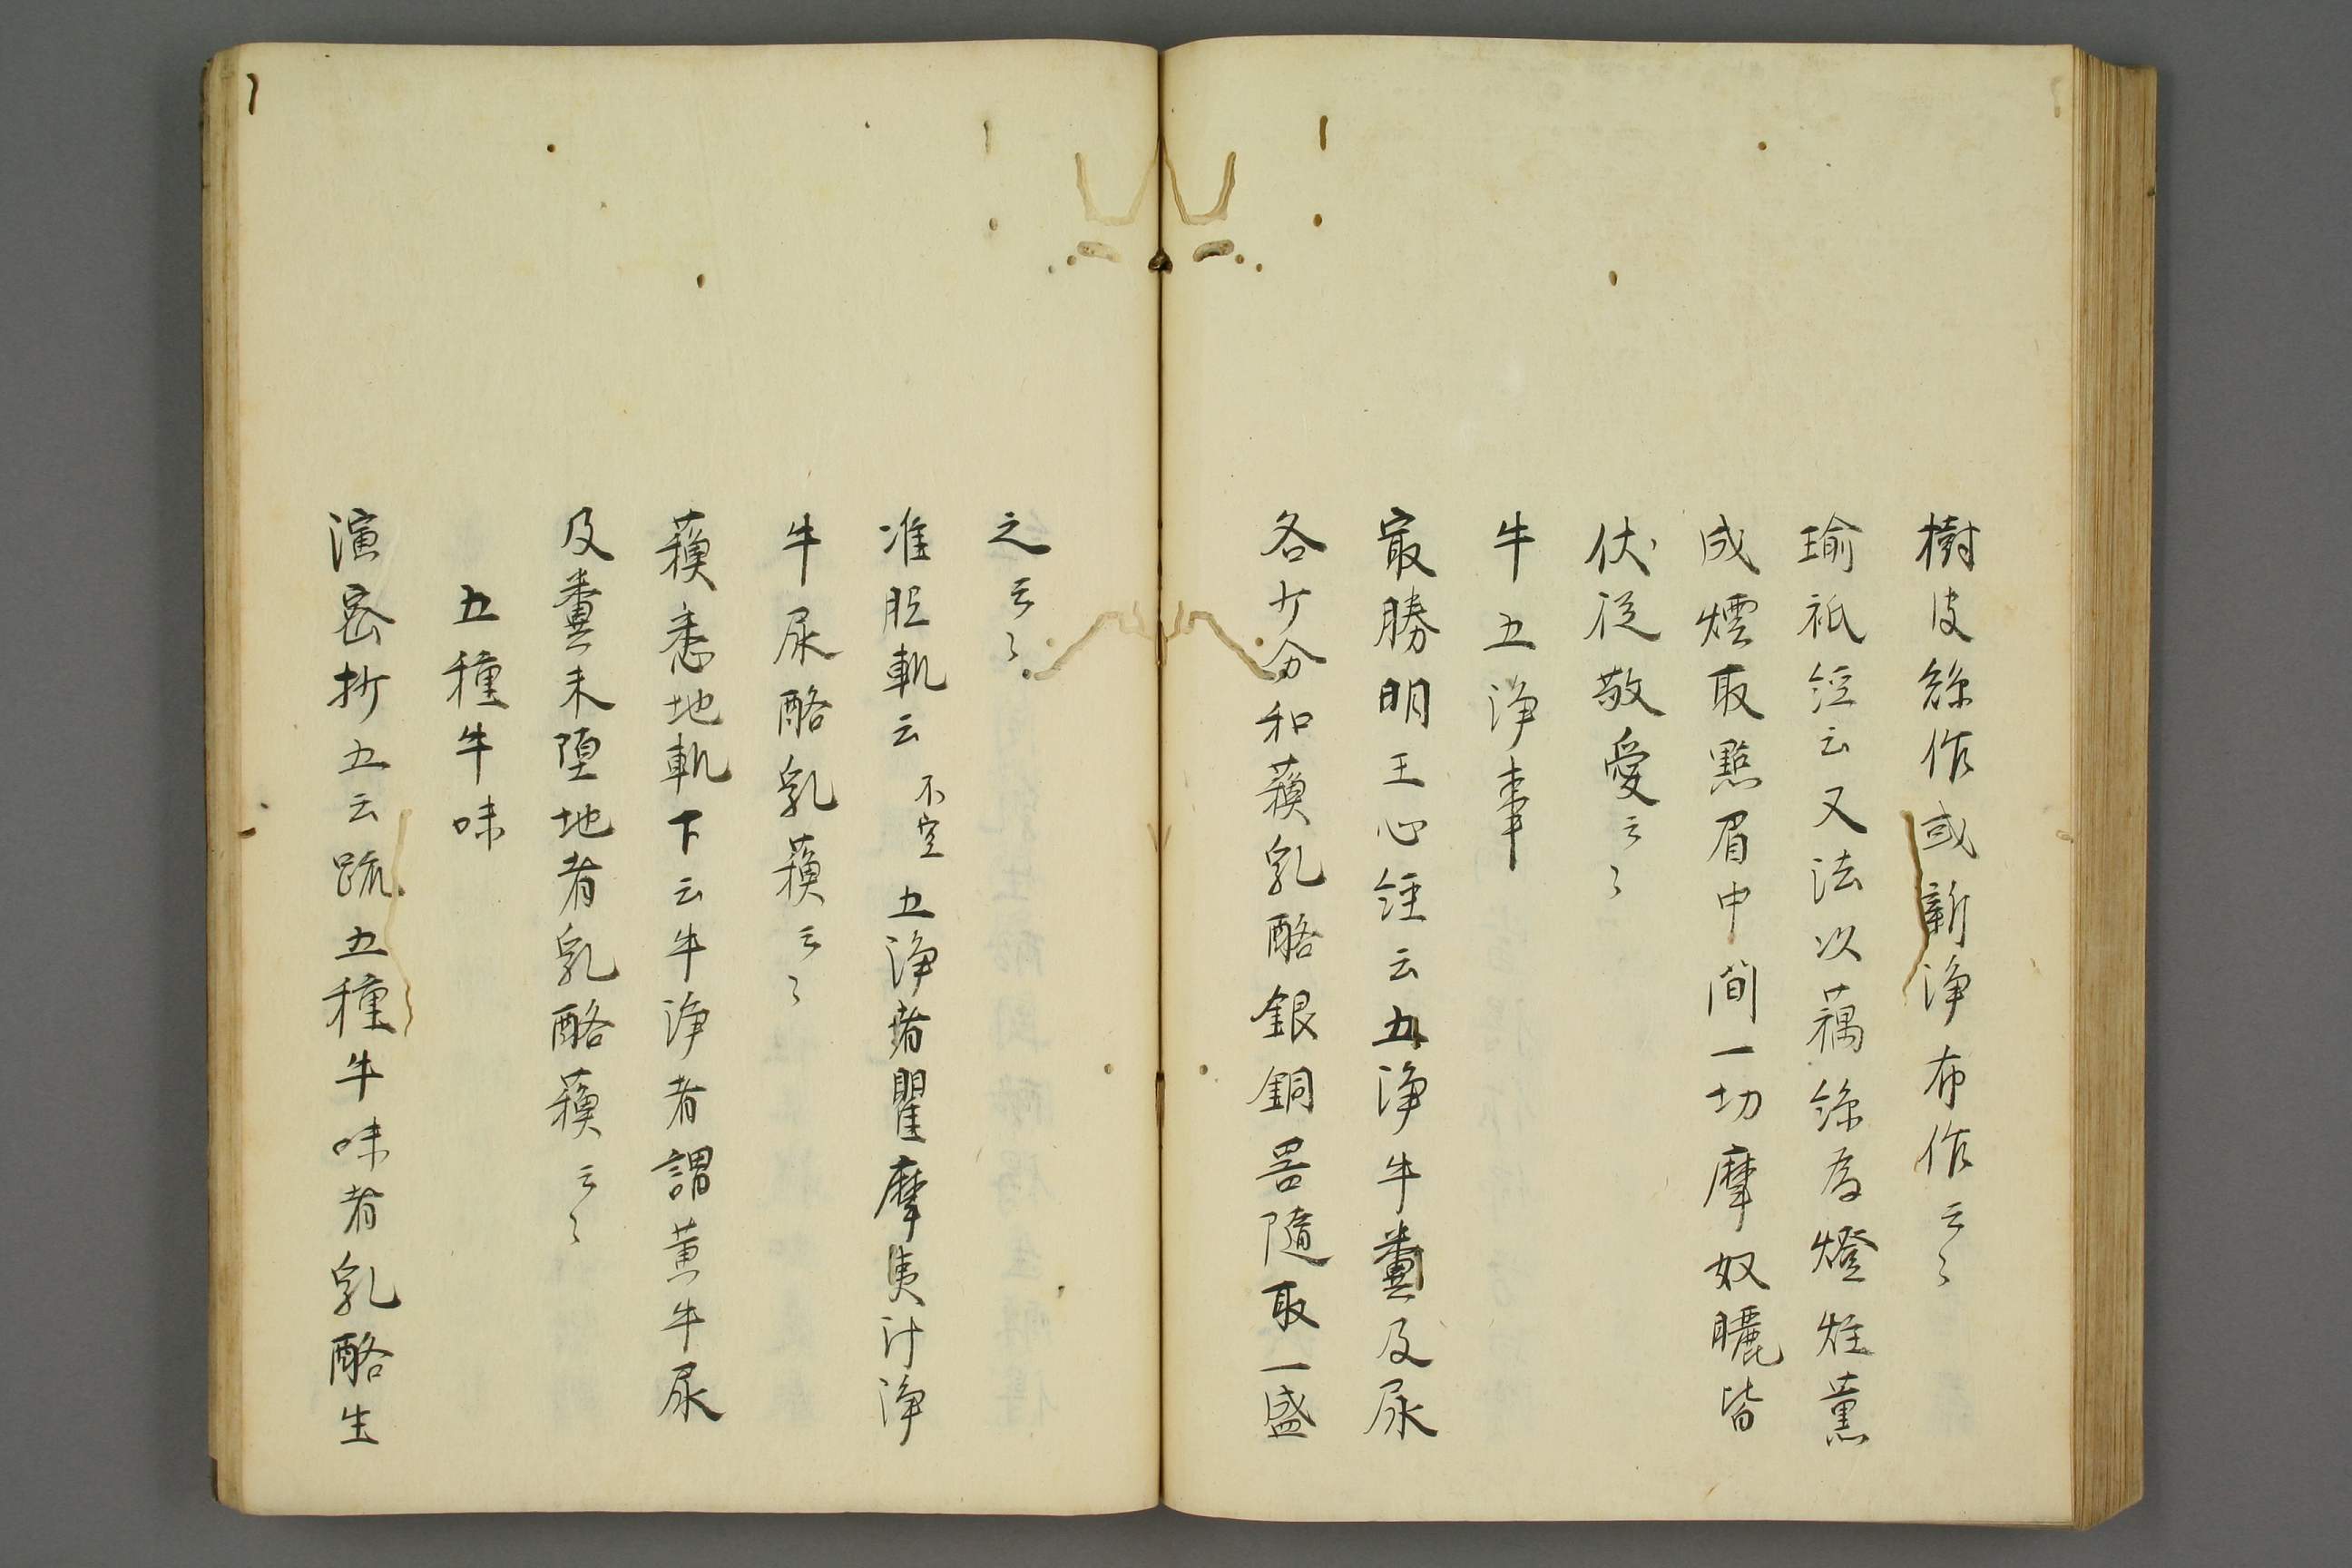 樹皮絲作或新淨布作云〻
瑜祇經云又法以藕絲為燈炷薰
成煙取點眉中間一切摩奴曬皆
伏從敬愛云〻
牛五淨事
最勝明王心經云五淨牛糞及尿
各少分和蘇乳酪銀銅器隨取一盛
之云〻
准胝軌云不空五淨者瞿摩夷汁淨
牛尿酪乳蘇云〻
蘇悉地軌下云牛淨者謂黄牛尿
及糞未墮地者乳酪蘇云〻
五種牛味
演密抄五云疏五種牛味者乳酪生